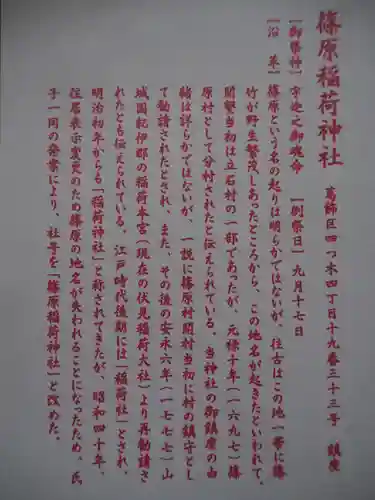 篠原稲荷神社 葛飾区四つ木四丁目十九番三十三号 鎮座
[御祭神] 宇迦之御魂命 [例祭日] 九月十七日
[沿革] 篠原という名の起りは明らかではないが、往古はこの地一帯に篠
竹が野生繁茂しあったところから、この地名が起きたといわれて、
開墾当初は立石村の一部であったが、元禄十年(一六九七)篠
原村として分村されたと伝えられている。当神社の御鎮座の由
緒は詳らかではないが、一説に篠原村開村当初に村の鎮守とし
て勧請されたとされ、また、その後の安永六年(一七七七)山
城国紀伊郡の稲荷本宮(現在の伏見稲荷大社)より再勧請さ
れたとも伝えられている。江戸時代後期には「稲荷社」とされ、
明治初年からも「稲荷神社」と称されてきたが、昭和四十年、
住居表示変更のため篠原の地名が失われることになったため、氏
子一同の発案により、社号を「篠原稲荷神社」と改めた。